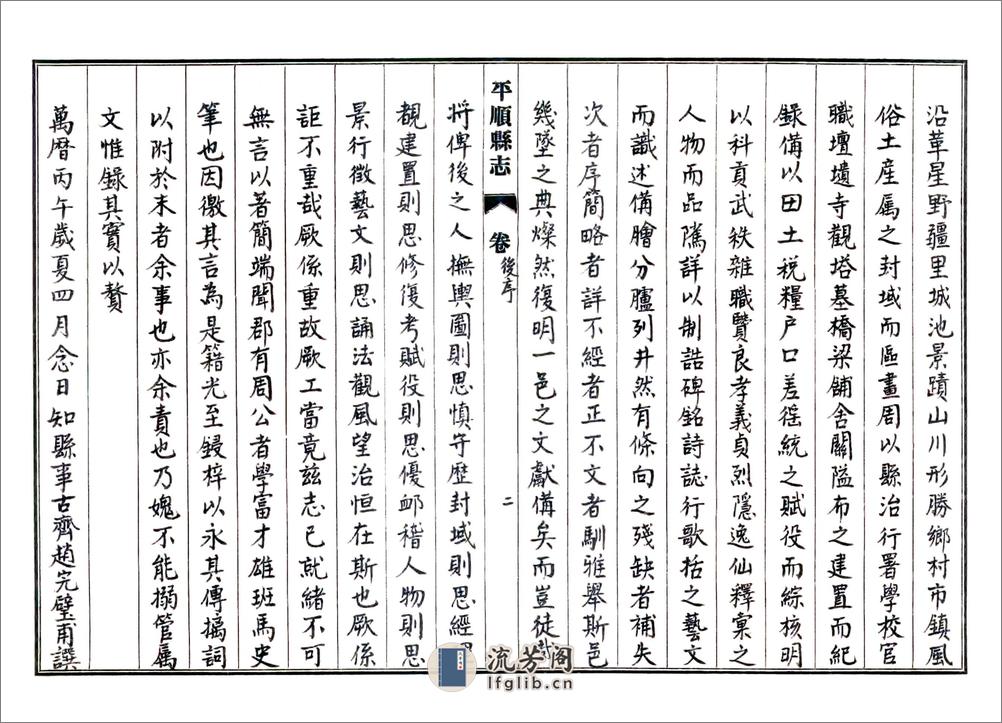 沿革星野疆里城池景蹟山川形勝鄉村市鎮風
俗土産属之封域而區畫周以縣治行署學校官
職壇壝寺觀塔墓橋梁舖舍關隘布之建置而紀
錄備以田土税糧户口差徭統之賦役而綜核明
以科貢武秩雜職贒良孝義貞烈隱逸仙釋彙之
人物而品隲詳以制誥碑銘詩誌行歌括之藝文
而識述備膾分臚列井然有條向之殘缺者補失
次者序簡略者詳不經者正不文者馴雅舉斯邑
幾墜之典燦然復明一邑之文獻備矣而豈徒
平順縣志 卷 後序 二
將俾後之人撫輿圖則思慎守歴封域則思經
覩建置則思修復考賦役則思優邮稽人物則思
景行徵藝文則思誦法觀風望治恒在斯也厥係
詎不重哉厥係重故厥工當竟兹志已就緒不可
無言以著簡端聞郡有周公者學富才雄班馬史
筆也因徼其言為是籍光至鋟梓以永其傳摛詞
以附於末者余事也亦余責也乃媿不能搦管属
文惟錄其實以贅
萬曆丙午歲夏四月念日知縣事古齊趙完璧甫譔
流芳阁
lfglib.cn